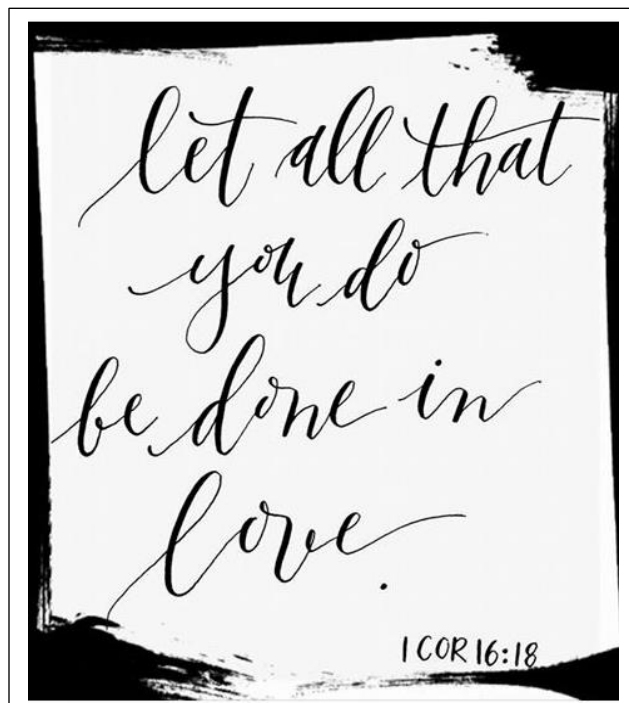 let all that
you do
be done in
love.
1 COR 16:18